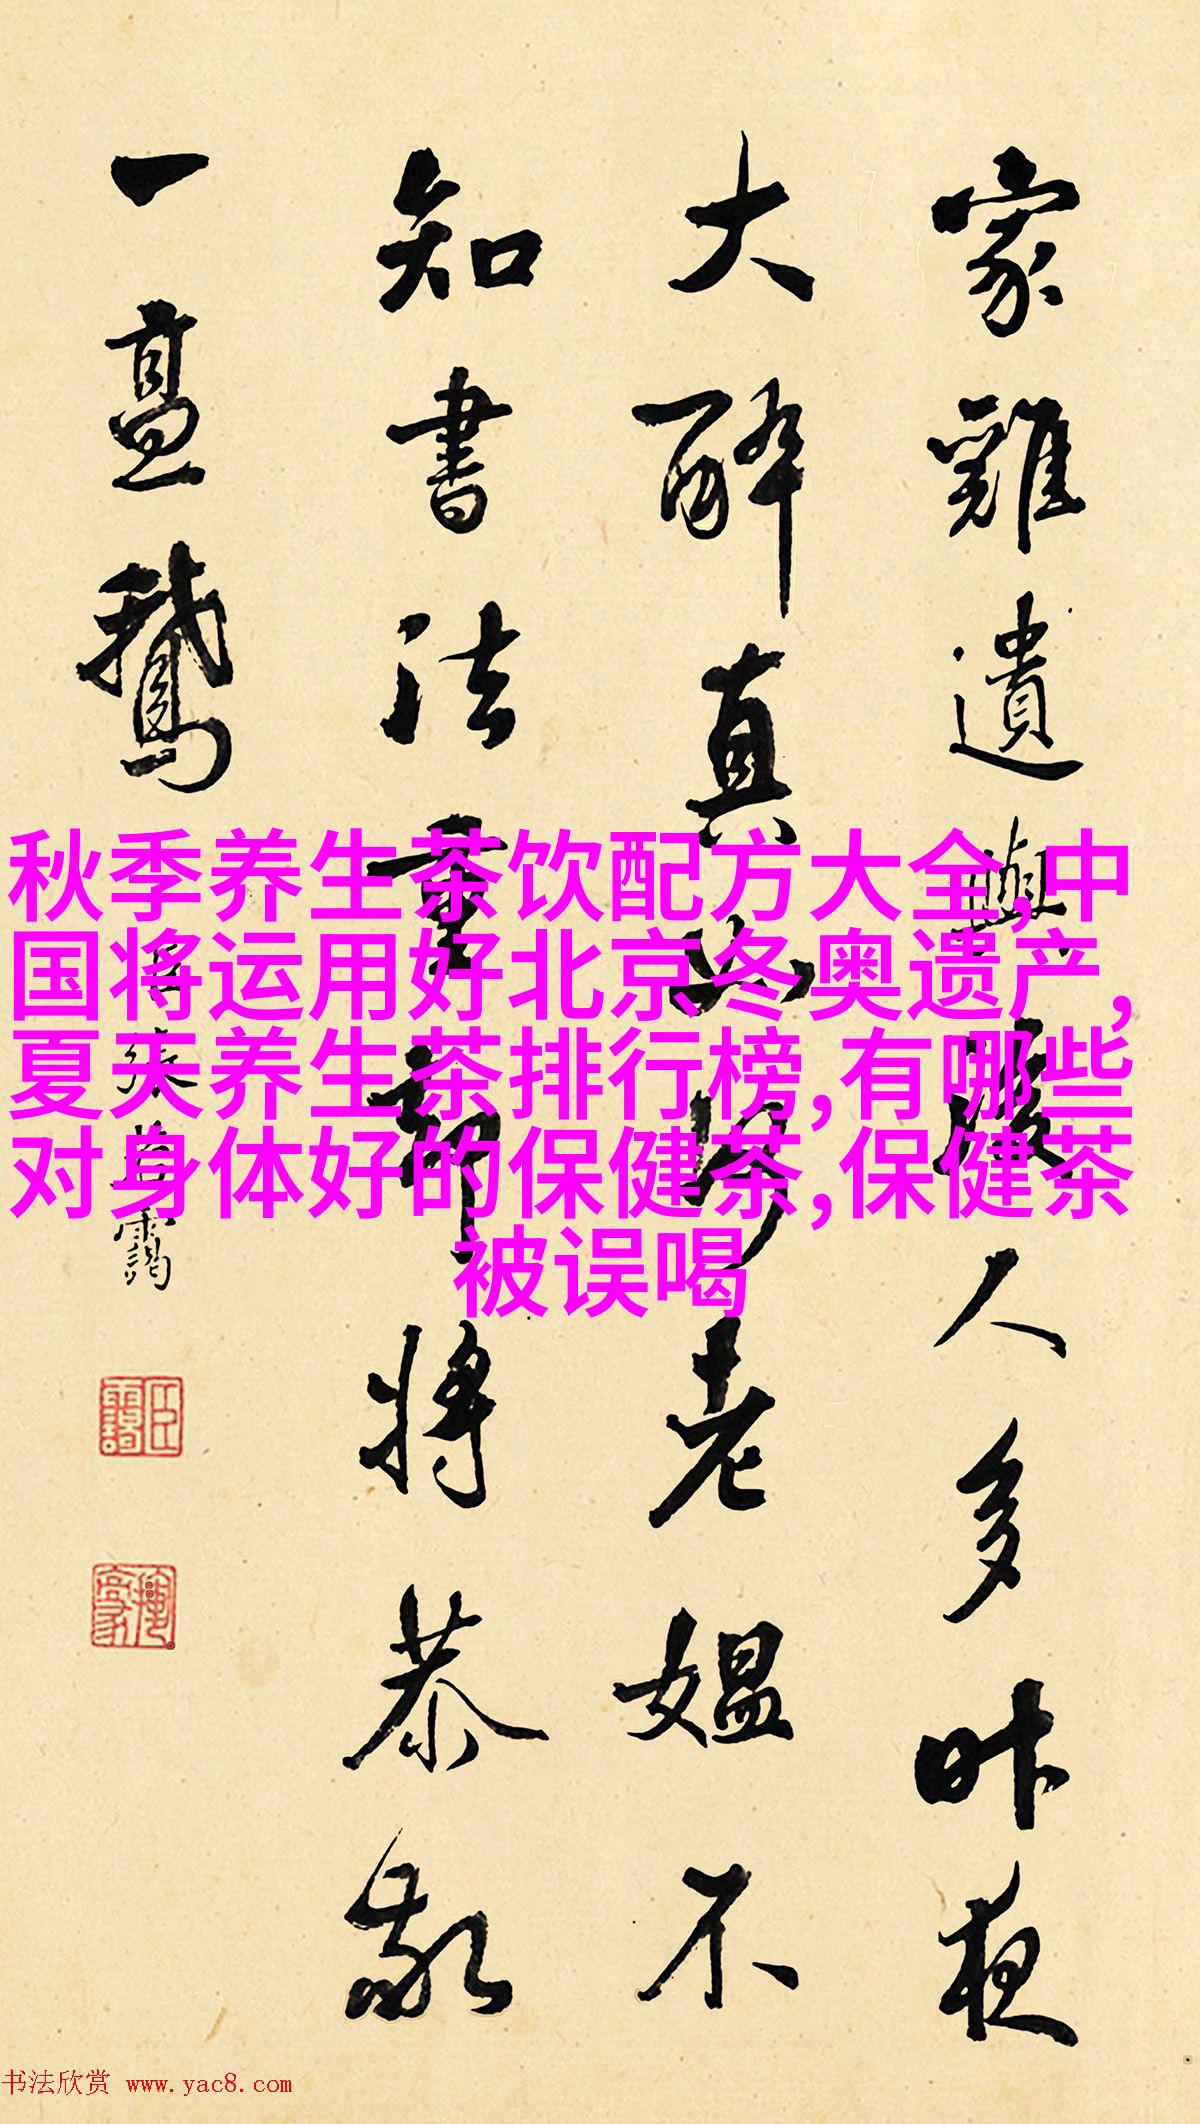 家雞遺與人多昨夜
大醉真老媪不
知書法重將恭敬
一鵝
張若靄
秋季养生茶饮配方大全,中
国将运用好北京冬奥遗产,
夏天养生茶排行榜,有哪些
对身体好的保健茶,保健茶
被误喝
书法欣赏 www.yac8.com